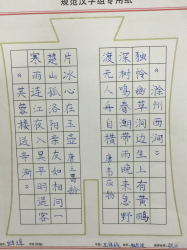 规范汉字组专用纸
《滁州西涧》
独怜幽草涧边生上有黄鹂
深树鸣春潮带雨晚来急野
渡无人舟自横 唐韦应物
《芙蓉楼送辛渐》
寒雨连江夜入吴平明送客
楚山孤洛阳亲友如相问一
片冰心在玉壶 唐王昌龄